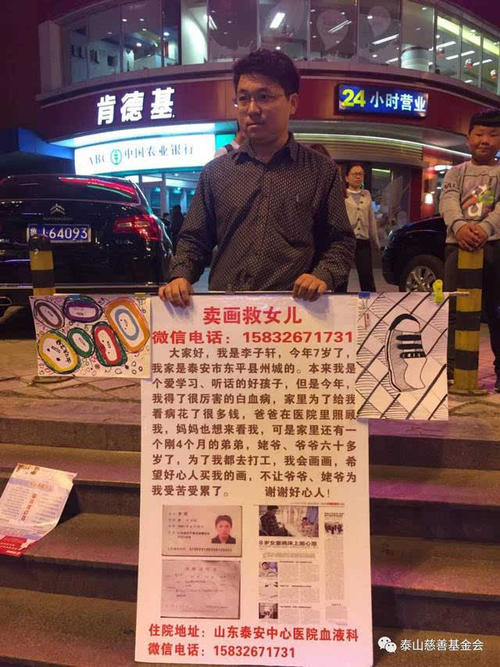 肯德基
24小时营业
ABC 中国农业银行
64093
卖画救女儿
微信电话：15832671731
大家好，我是李子轩，今年7岁了，
我家是泰安市东平县州城的。本来我是
个爱学习、听话的好孩子，但是今年，
我得了很厉害的白血病，家里为了给我
看病花了很多钱，爸爸在医院里照顾
我，妈妈也想来看我，可是家里还有一
个刚4个月的弟弟，姥爷、爷爷六十多
岁了，为了我都去打工，我会画画，希
望好心人买我的画，不让爷爷、姥爷为
我受苦受累了。 谢谢好心人！
住院地址：山东泰安中心医院血液科
微信电话：15832671731
泰山慈善基金会